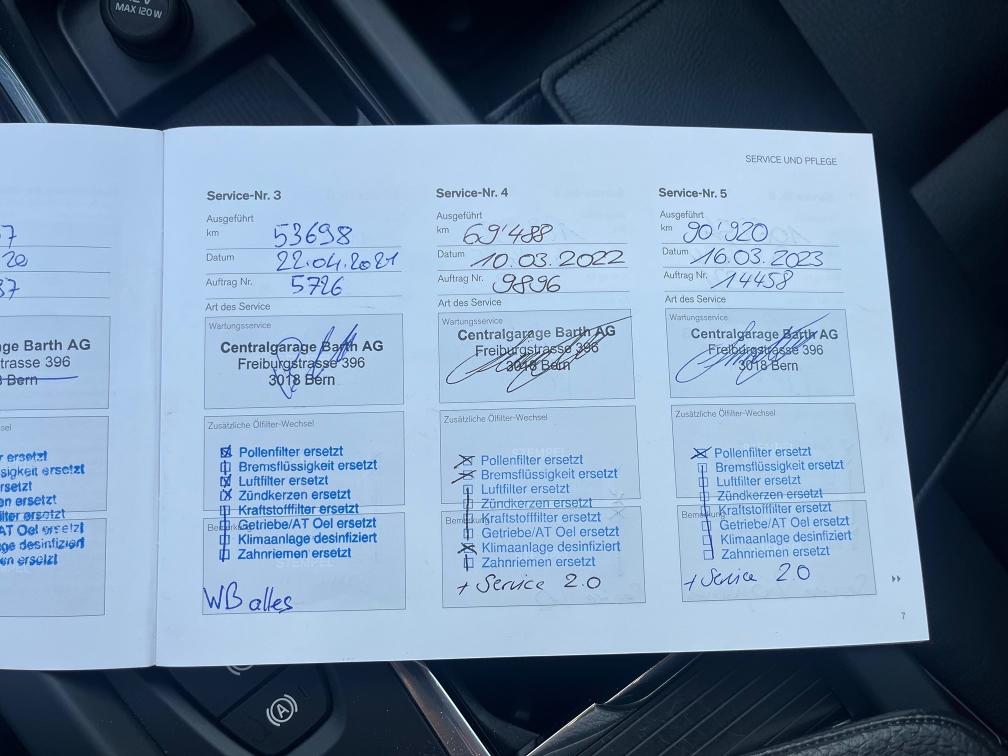 MAX 120W
SERVICE UND PFLEGE
7
20
37
ge Barth AG
trasse 396
Bern
sel
r ersetzt
sigkeit ersetzt
rsetzt
en ersetzt
lter ersetzt
AT Oel ersetzt
ge desinfiziert
en ersetzt
Service-Nr. 3
Ausgeführt
km 53698
Datum 22.04.2021
Auftrag Nr. 5726
Art des Service
Wartungsservice
Centralgarage Barth AG
Freiburgstrasse 396
3018 Bern
Zusätzliche Ölfilter-Wechsel
Pollenfilter ersetzt
Bremsflüssigkeit ersetzt
Luftfilter ersetzt
Zündkerzen ersetzt
Kraftstofffilter ersetzt
Getriebe/AT Oel ersetzt
Klimaanlage desinfiziert
Zahnriemen ersetzt
STEMPEL
WB alles
Service-Nr. 4
Ausgeführt
km 69'488
Datum 10.03.2022
Auftrag Nr. 9896
Art des Service
Wartungsservice
Centralgarage Barth AG
Freiburgstrasse 396
3018 Bern
Zusätzliche Ölfilter-Wechsel
Pollenfilter ersetzt
Bremsflüssigkeit ersetzt
Luftfilter ersetzt
Zündkerzen ersetzt
Kraftstofffilter ersetzt
Getriebe/AT Oel ersetzt
Klimaanlage desinfiziert
Zahnriemen ersetzt
+ Service 2.0
Service-Nr. 5
Ausgeführt
km 90'920
Datum 16.03.2023
Auftrag Nr. 14458
Art des Service
Wartungsservice
Centralgarage Barth AG
Freiburgstrasse 396
3018 Bern
Zusätzliche Ölfilter-Wechsel
Pollenfilter ersetzt
Bremsflüssigkeit ersetzt
Luftfilter ersetzt
Zündkerzen ersetzt
Kraftstofffilter ersetzt
Getriebe/AT Oel ersetzt
Klimaanlage desinfiziert
Zahnriemen ersetzt
+ Service 2.0
7
A